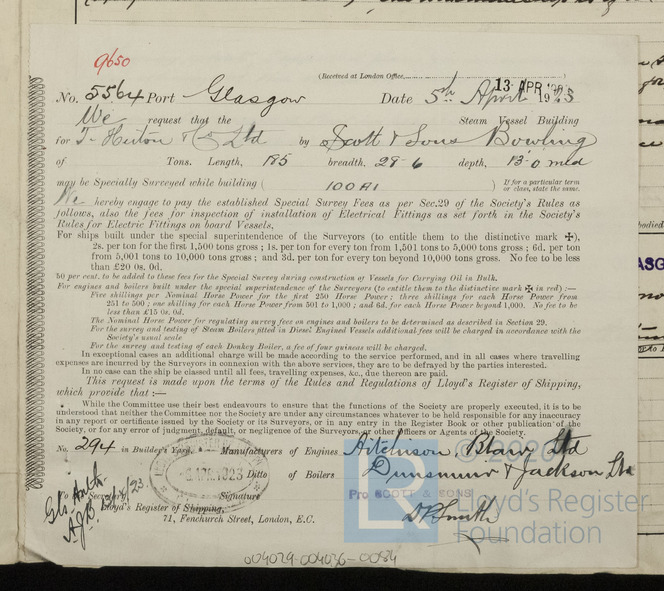 9650
(Received at London Office, 13 APR 1923)
No. 5564 Port Glasgow Date 5th April 1923
We request that the Steam Vessel Building
for T. Heiton & Co Ltd by Scott & Sons Bowling
of Tons. Length, 185 breadth, 29-6 depth, 13.0 mld
may be Specially Surveyed while building ( 100 A1 ) If for a particular term or class, state the same.
We hereby engage to pay the established Special Survey Fees as per Sec. 29 of the Society's Rules as
follows, also the fees for inspection of installation of Electrical Fittings as set forth in the Society's
Rules for Electric Fittings on board Vessels.
For ships built under the special superintendence of the Surveyors (to entitle them to the distinctive mark ✠),
2s. per ton for the first 1,500 tons gross; 1s. per ton for every ton from 1,501 tons to 5,000 tons gross; 6d. per ton
from 5,001 tons to 10,000 tons gross; and 3d. per ton for every ton beyond 10,000 tons gross. No fee to be less
than £20 0s. 0d.
50 per cent. to be added to these fees for the Special Survey during construction of Vessels for Carrying Oil in Bulk.
For engines and boilers built under the special superintendence of the Surveyors (to entitle them to the distinctive mark ✠ in red) :—
Five shillings per Nominal Horse Power for the first 250 Horse Power; three shillings for each Horse Power from
251 to 500; one shilling for each Horse Power from 501 to 1,000; and 6d. for each Horse Power beyond 1,000. No fee to be
less than £15 0s. 0d.
The Nominal Horse Power for regulating survey fees on engines and boilers to be determined as described in Section 29.
For the survey and testing of Steam Boilers fitted in Diesel Engined Vessels additional fees will be charged in accordance with the
Society's usual scale
For the survey and testing of each Donkey Boiler, a fee of four guineas will be charged.
In exceptional cases an additional charge will be made according to the service performed, and in all cases where travelling
expenses are incurred by the Surveyors in connection with the above services, they are to be defrayed by the parties interested.
In no case can the ship be classed until all fees, travelling expenses, &c., due thereon are paid.
This request is made upon the terms of the Rules and Regulations of Lloyd's Register of Shipping,
which provide that :—
While the Committee use their best endeavours to ensure that the functions of the Society are properly executed, it is to be
understood that neither the Committee nor the Society are under any circumstances whatever to be held responsible for any inaccuracy
in any report or certificate issued by the Society or its Surveyors, or in any entry in the Register Book or other publication of the
Society, or for any error of judgment, default, or negligence of the Surveyors, or other Officers or Agents of the Society.
No. 294 in Builder's Yard. Manufacturers of Engines Aitchison, Blair Ltd
Ditto of Boilers Dunsmuir & Jackson Ltd
Pro SCOTT & SONS
Secretary, Signature D. Smith
Lloyd's Register of Shipping,
71, Fenchurch Street, London, E.C.
Lloyd's Register
Foundation
004029-004036-0084